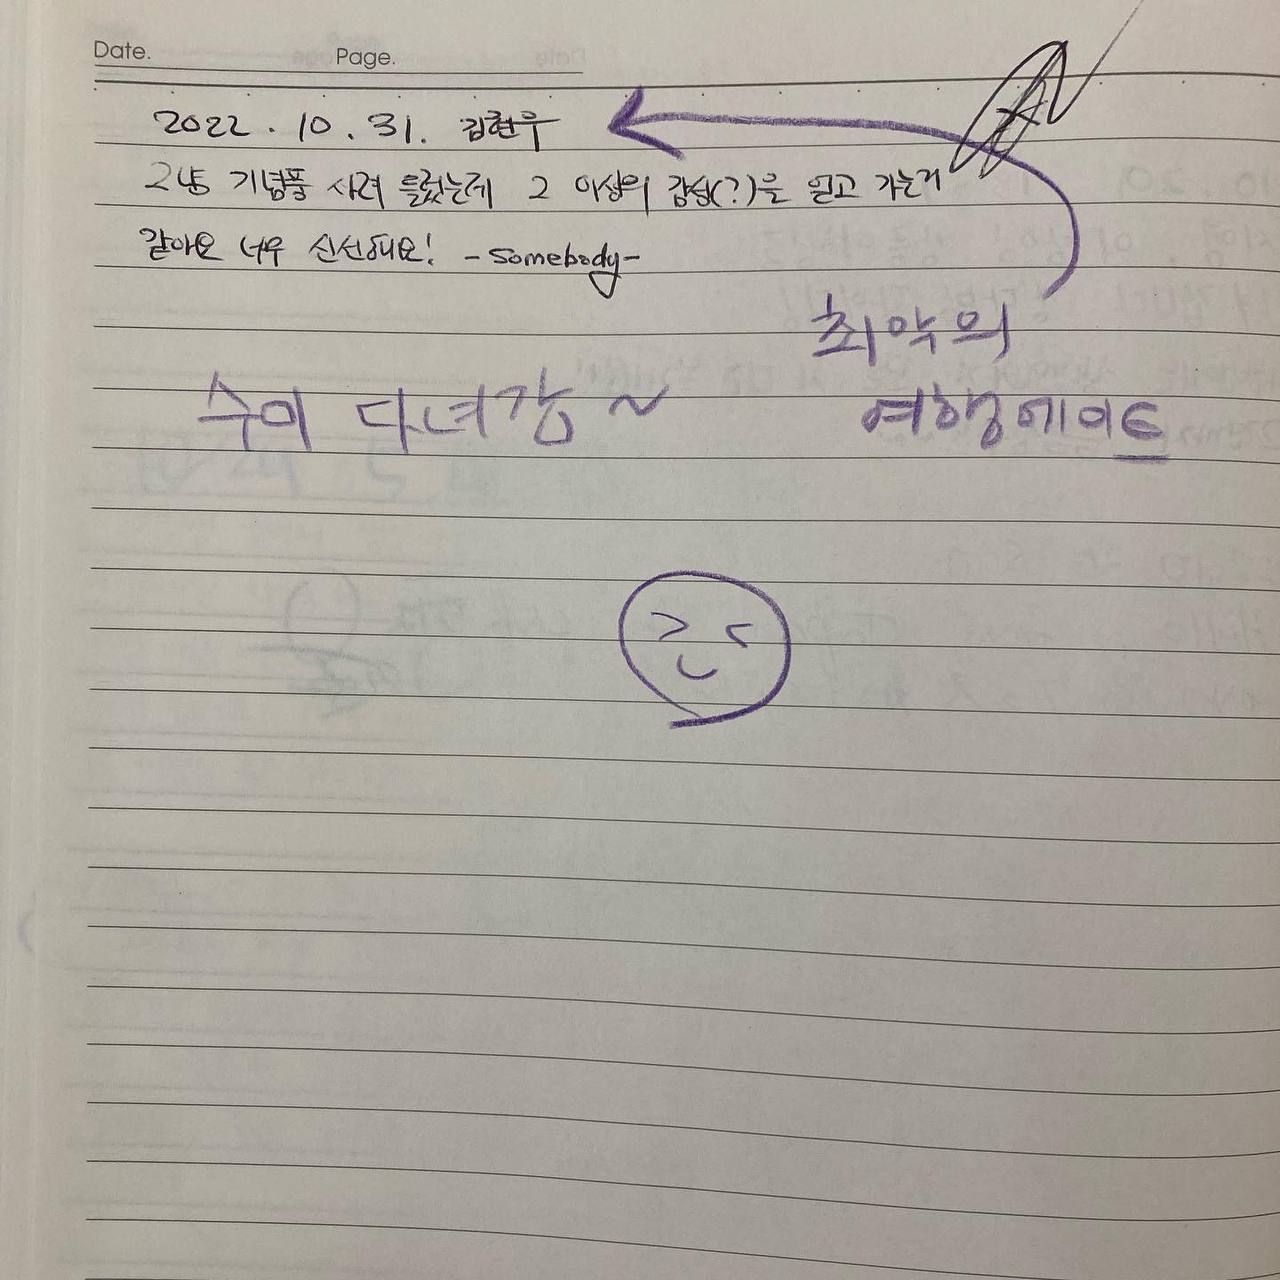 Date. Page.
2022. 10. 31. 김현우
그냥 기념품 사러 들렀는데 그 이상의 감성(?)을 얻고 가는거
같아요 너무 신선해요! -somebody-
최악의
여행메이트
수미 다녀감 ~